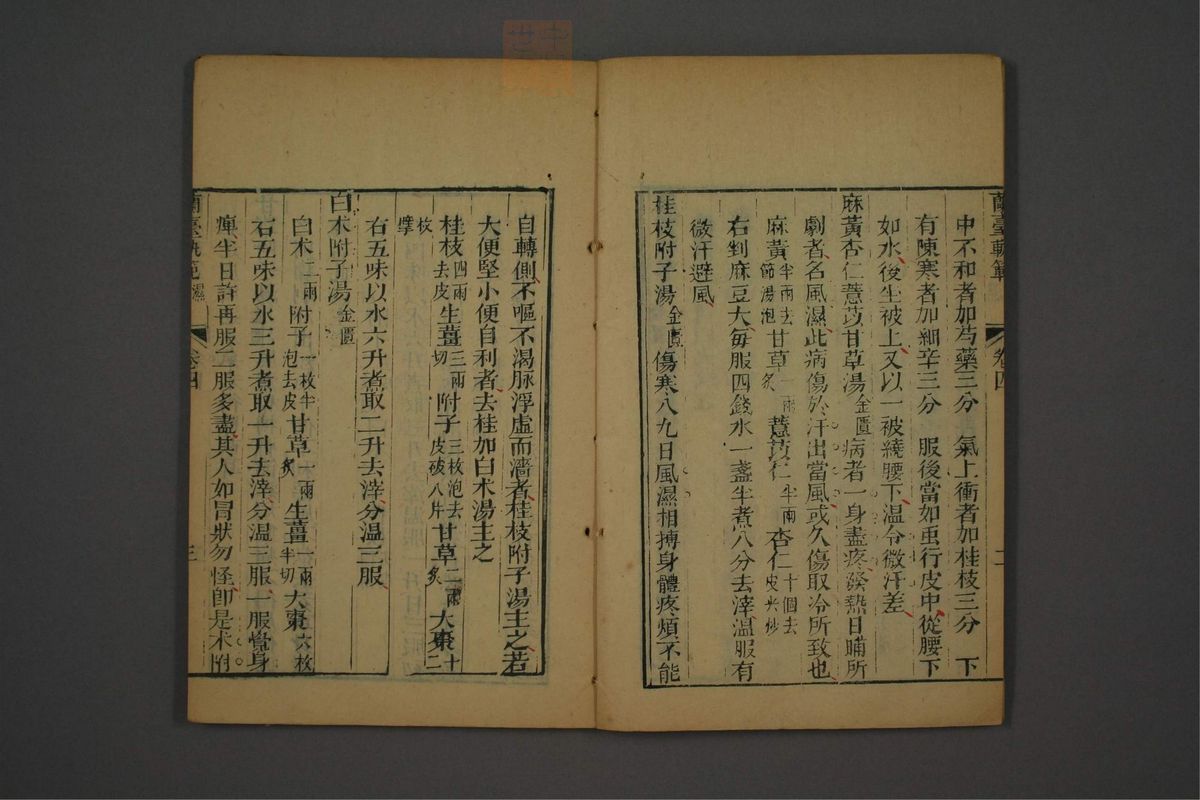 蘭臺軌範 卷四 二
中不和者加芍藥三分 氣上衝者加桂枝三分 下
有陳寒者加細辛三分 服後當如虫行皮中從腰下
如水後坐被上又以一被繞腰下温令微汗差
麻黃杏仁薏苡甘草湯金匱 病者一身盡疼發熱日晡所
劇者名風濕此病傷於汗出當風或久傷取冷所致也
麻黃半兩去節湯泡 甘草一兩炙 薏苡仁半兩 杏仁十個去皮尖炒
右剉麻豆大每服四錢水一盞半煮八分去滓温服有
微汗避風
桂枝附子湯金匱 傷寒八九日風濕相搏身體疼煩不能
自轉側不嘔不渴脉浮虛而濇者桂枝附子湯主之若
大便堅小便自利者去桂加白朮湯主之
桂枝四兩去皮 生薑三兩切 附子三枚泡去皮破八片 甘草二兩炙 大棗十二
枚擘
右五味以水六升煮取二升去滓分温三服
白朮附子湯金匱
白朮二兩 附子一枚半泡去皮 甘草一兩炙 生薑一兩半切 大棗六枚
右五味以水三升煮取一升去滓分温三服一服覺身
痺半日許再服三服多盡其人如冒狀勿怪卽是朮附
蘭臺軌範 濕 卷四 三